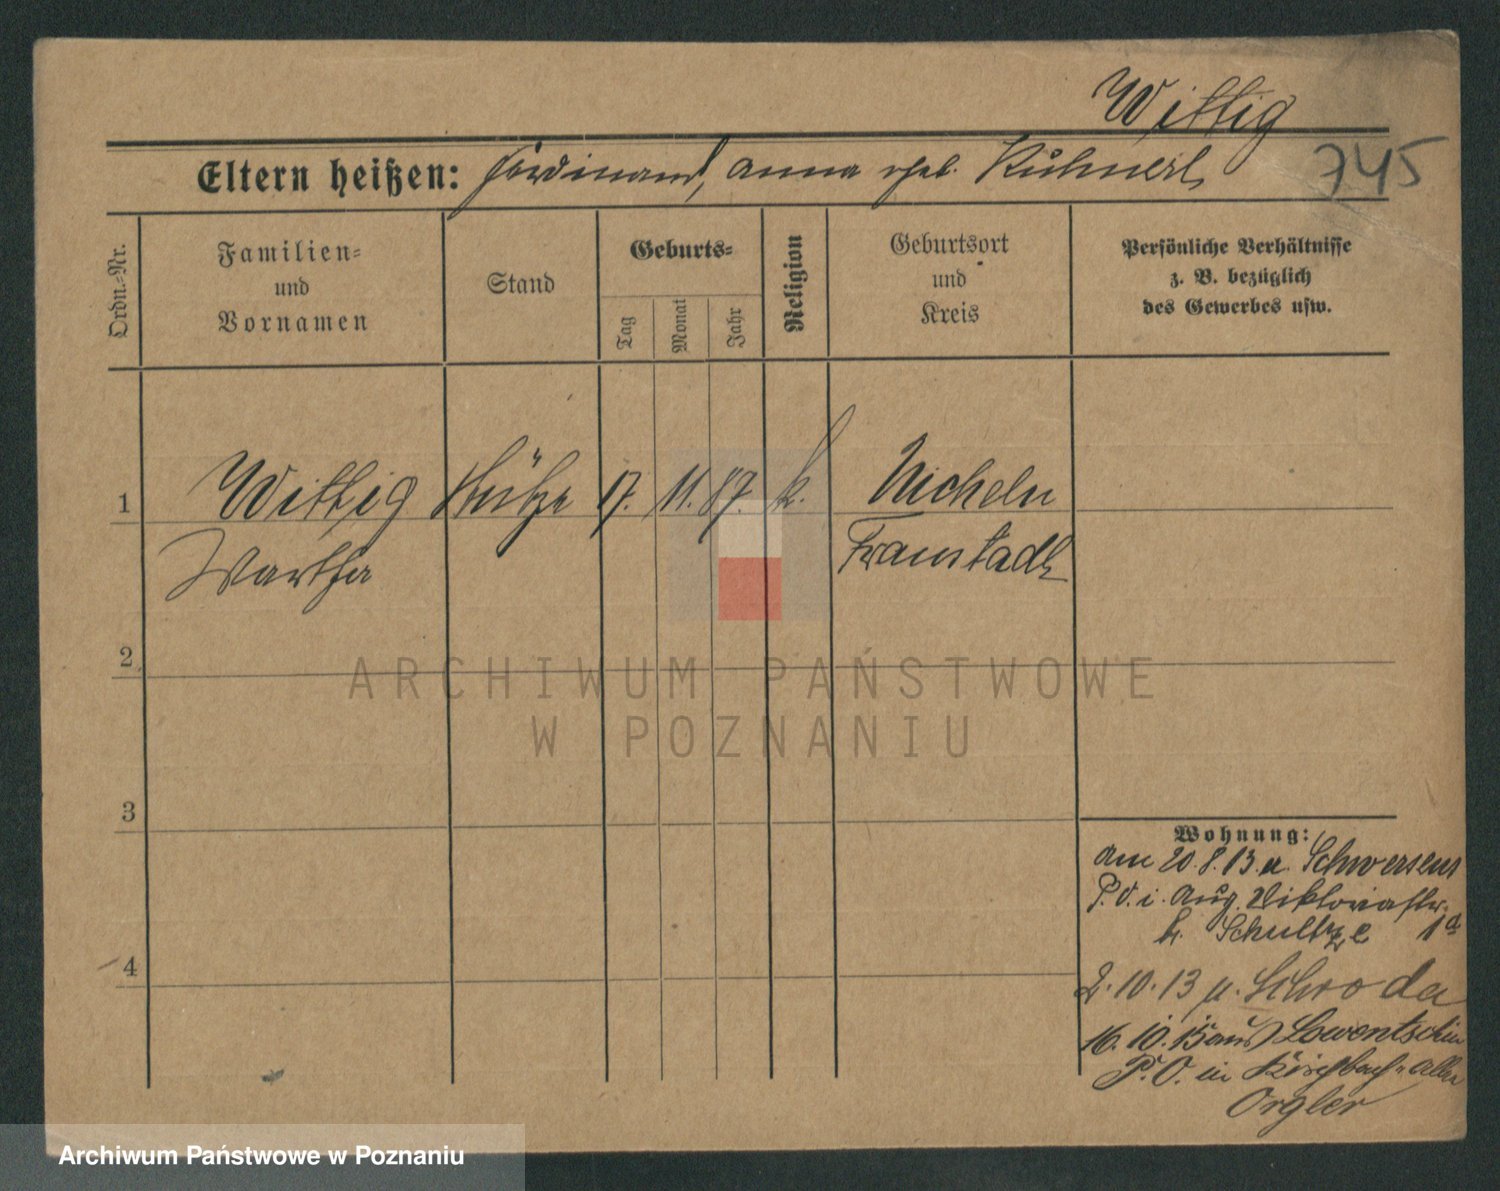 Wittig
745
Eltern heißen: Ferdinand, Anna geb. Kuhnert
Ordn.-Nr.
Familien- und Vornamen
Stand
Geburts-
Tag
Monat
Jahr
Religion
Geburtsort und Kreis
Persönliche Verhältnisse
z. B. bezüglich
des Gewerbes usw.
1 Wittig Stütze 17. 11. 87. k. Nicheln
Martha Fraustadt
2
3
4
Wohnung:
am 20.8.13. a. Schwersenz
P.O. i. Aug. Viktoriastr.
b. Schultze 1a
2.10.13 n. Schroda
16.10.15 aus Lowentschin
P.O. in Kirschbach-Allee
Orgler
ARCHIWUM PAŃSTWOWE
W POZNANIU
Archiwum Państwowe w Poznaniu